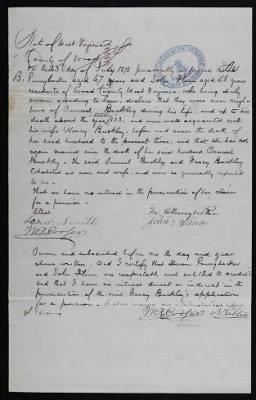 State of West Virginia
County of Wood
On this day of July 1878 personally
B. Pennybacker aged 67 years and John aged 68 years
residents of Wood County West Virginia who being duly
sworn according to law, declare that they were near neigh-
bors of Samuel Buckley during his life and up to his
death about the year 1823. and were well acquainted with
his wife Nancy Buckley, before and since the death of
her said husband to the present time, and that she has not
again married since the death of her said husband Samuel
Buckley. The said Samuel Buckley and Nancy Buckley
Cohabited as man and wife, and were so generally reputed
to be.
That we have no interest in the prosecution of her claim
for a pension.
Attest
Smith
Sworn and subscribed before me the day and year
above written. And I certify that Pennybacker
and John are respectable and entitled to credit
and that I have no interest direct or indirect in the
prosecution of the said Nancy Buckley's application
for a pension.